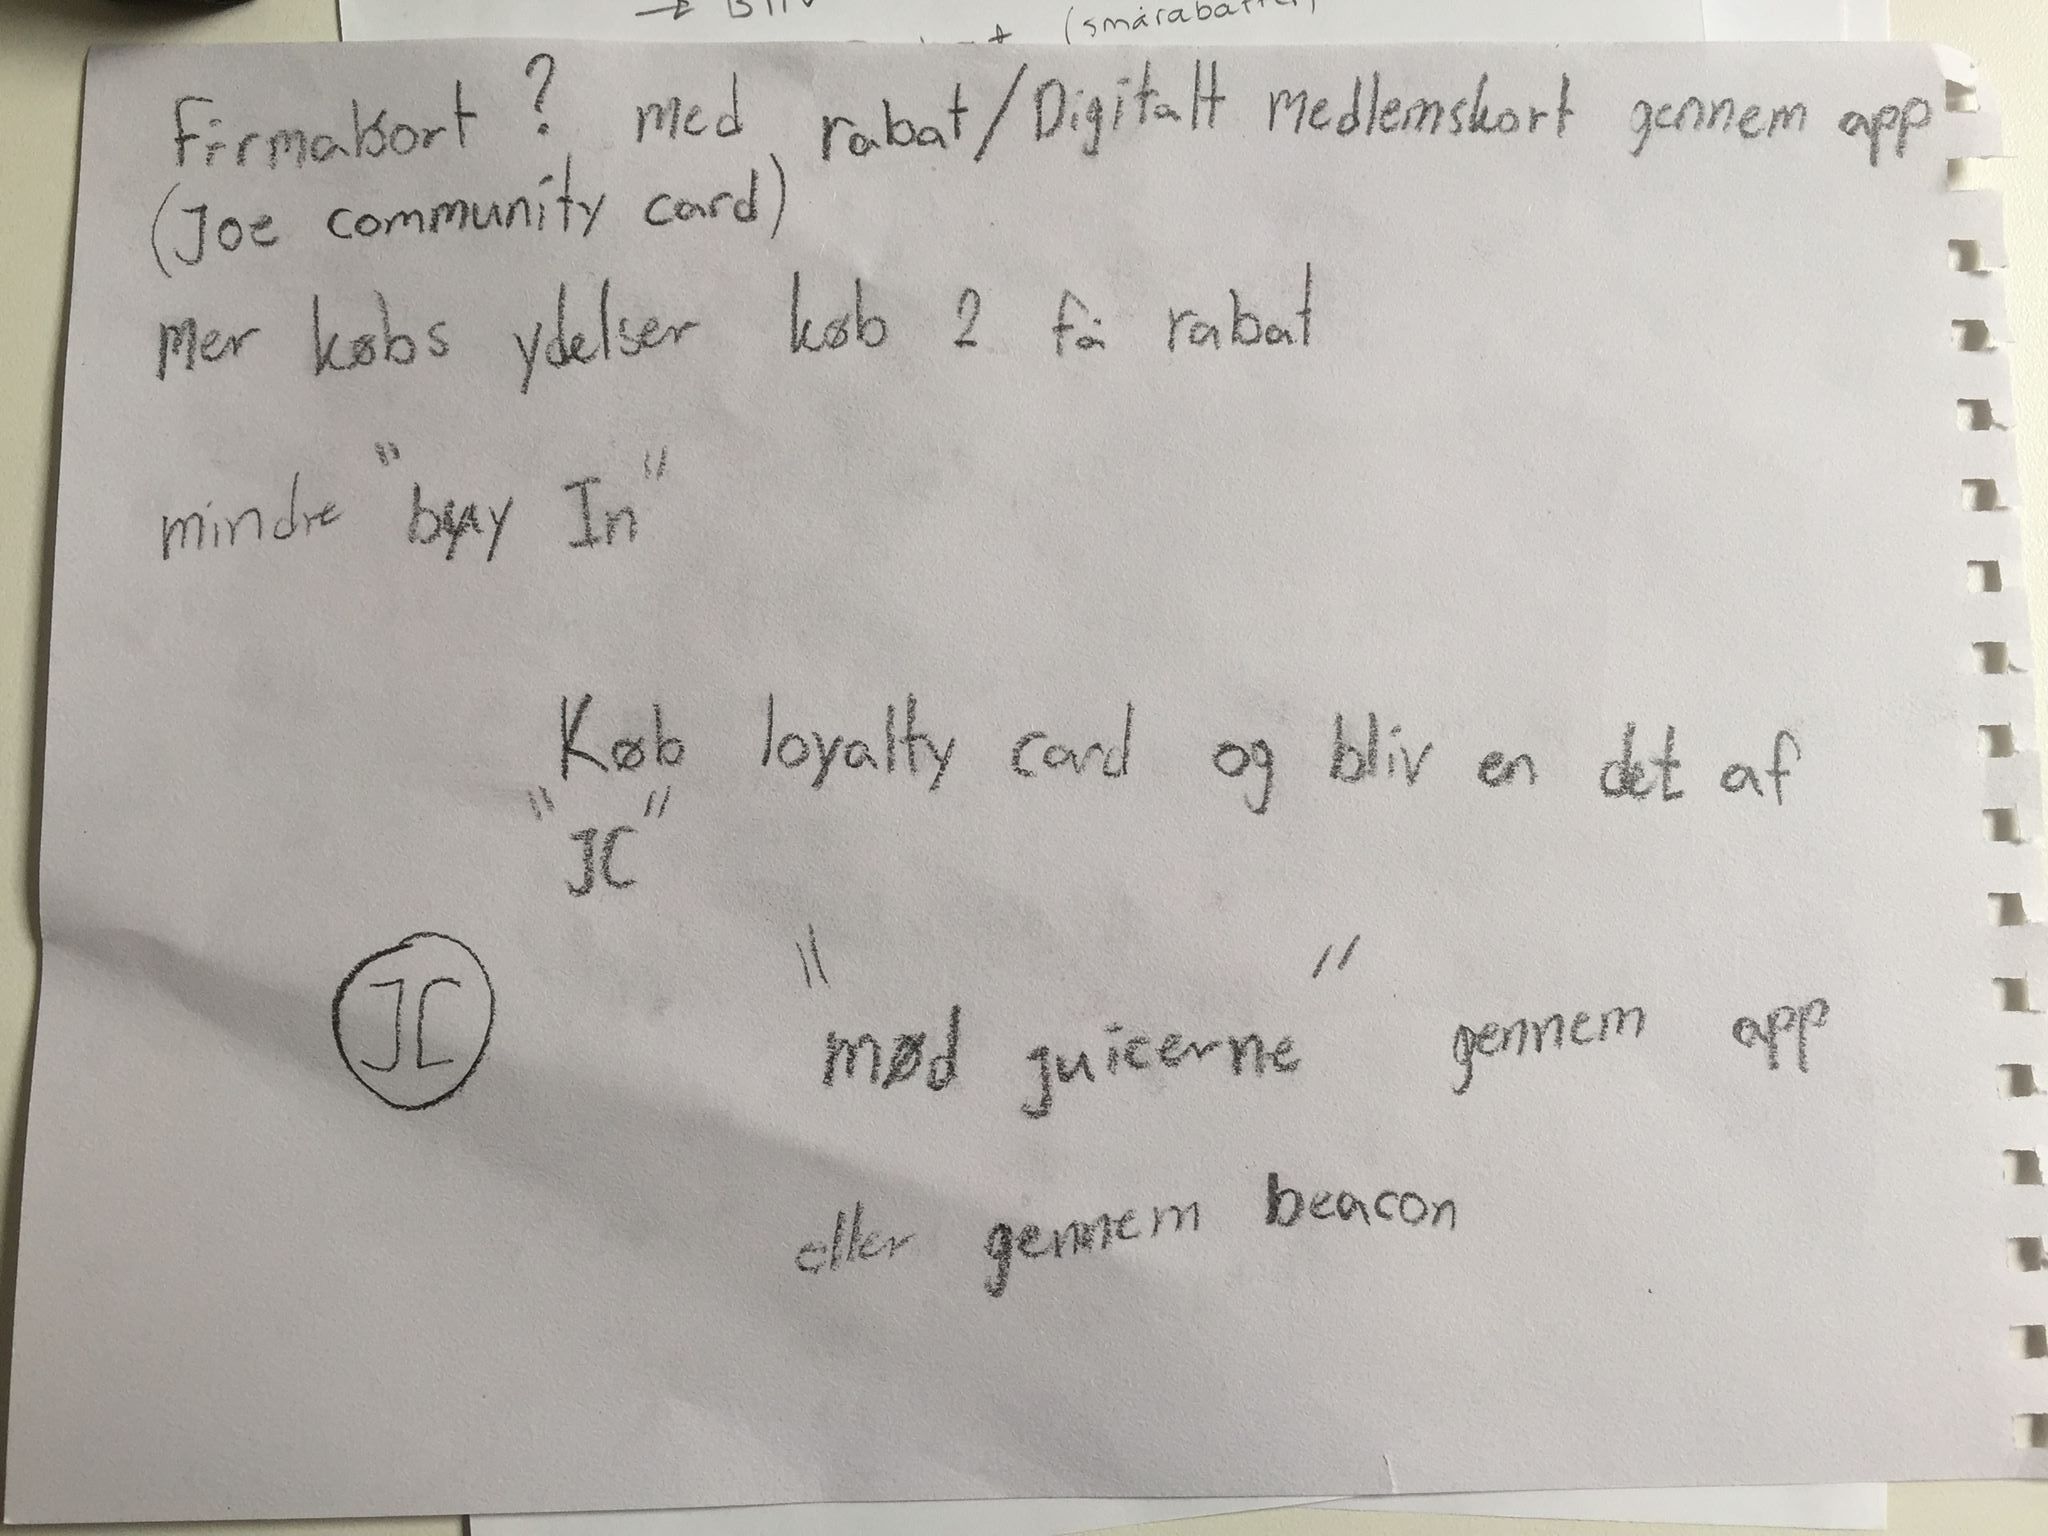 (smårabatter
Firmakort ? med rabat/Digitalt medlemskort gennem app
(Joe community card)
mer købs ydelser køb 2 få rabat
mindre "buy In"
Køb loyalty card og bliv en det af
"JC"
JC
"mød juicerne" gennem app
eller gennem beacon